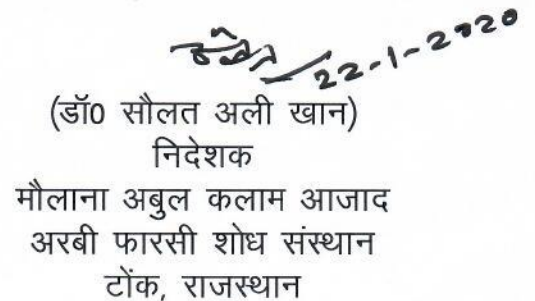 22-1-2020
(डॉ0 सौलत अली खान)
निदेशक
मौलाना अबुल कलाम आजाद
अरबी फारसी शोध संस्थान
टोंक, राजस्थान